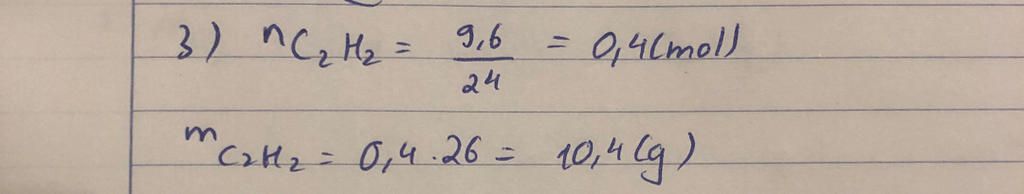 3) nC₂H₂ = 9,6/24 = 0,4(mol)
mC₂H₂ = 0,4 . 26 = 10,4(g)